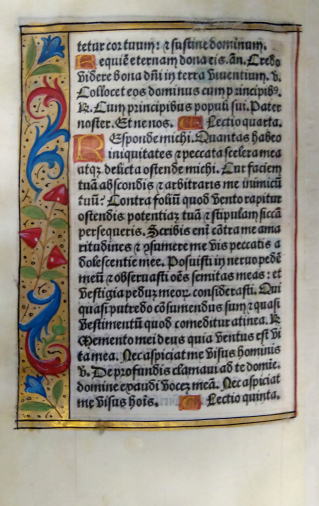 tetur cor tuum: ⁊ sustine dominum.
Requiē eternam dona eis. añ. Credo
videre bona dñi in terra viuentium. v.
Collocet eos dominus cum prīcipib⁹.
R. Cum principibus populi sui. Pater
noster. Et ne nos. Lectio quarta.
REsponde michi. Quantas habeo
iniquitates ⁊ peccata scelera mea
atqꝫ delicta ostende michi. Cur faciem
tuā abscondis ⁊ arbitraris me inimicū
tuū? Contra foliū quod vento rapitur
ostendis potentiaꝫ tuā ⁊ stipulam siccā
persequeris. Scribis enī cōtra me ama
ritudines ⁊ ꝯsumere me vis peccatis a
dolescentie mee. Posuisti in neruo pedē
meū ⁊ obseruasti oēs semitas meas: et
vestigia peduꝫ meoꝝ considerasti. Qui
quasi putredo cōsumendus sum ⁊ quasi
vestimentū quod comeditur a tinea. R.
Memento mei deus quia ventus est vi
ta mea. Nec aspiciat me visus hominis
v. De profundis clamaui ad te domie.
domine exaudi voceꝫ meā. Nec aspiciat
me visus hois. Lectio quinta.